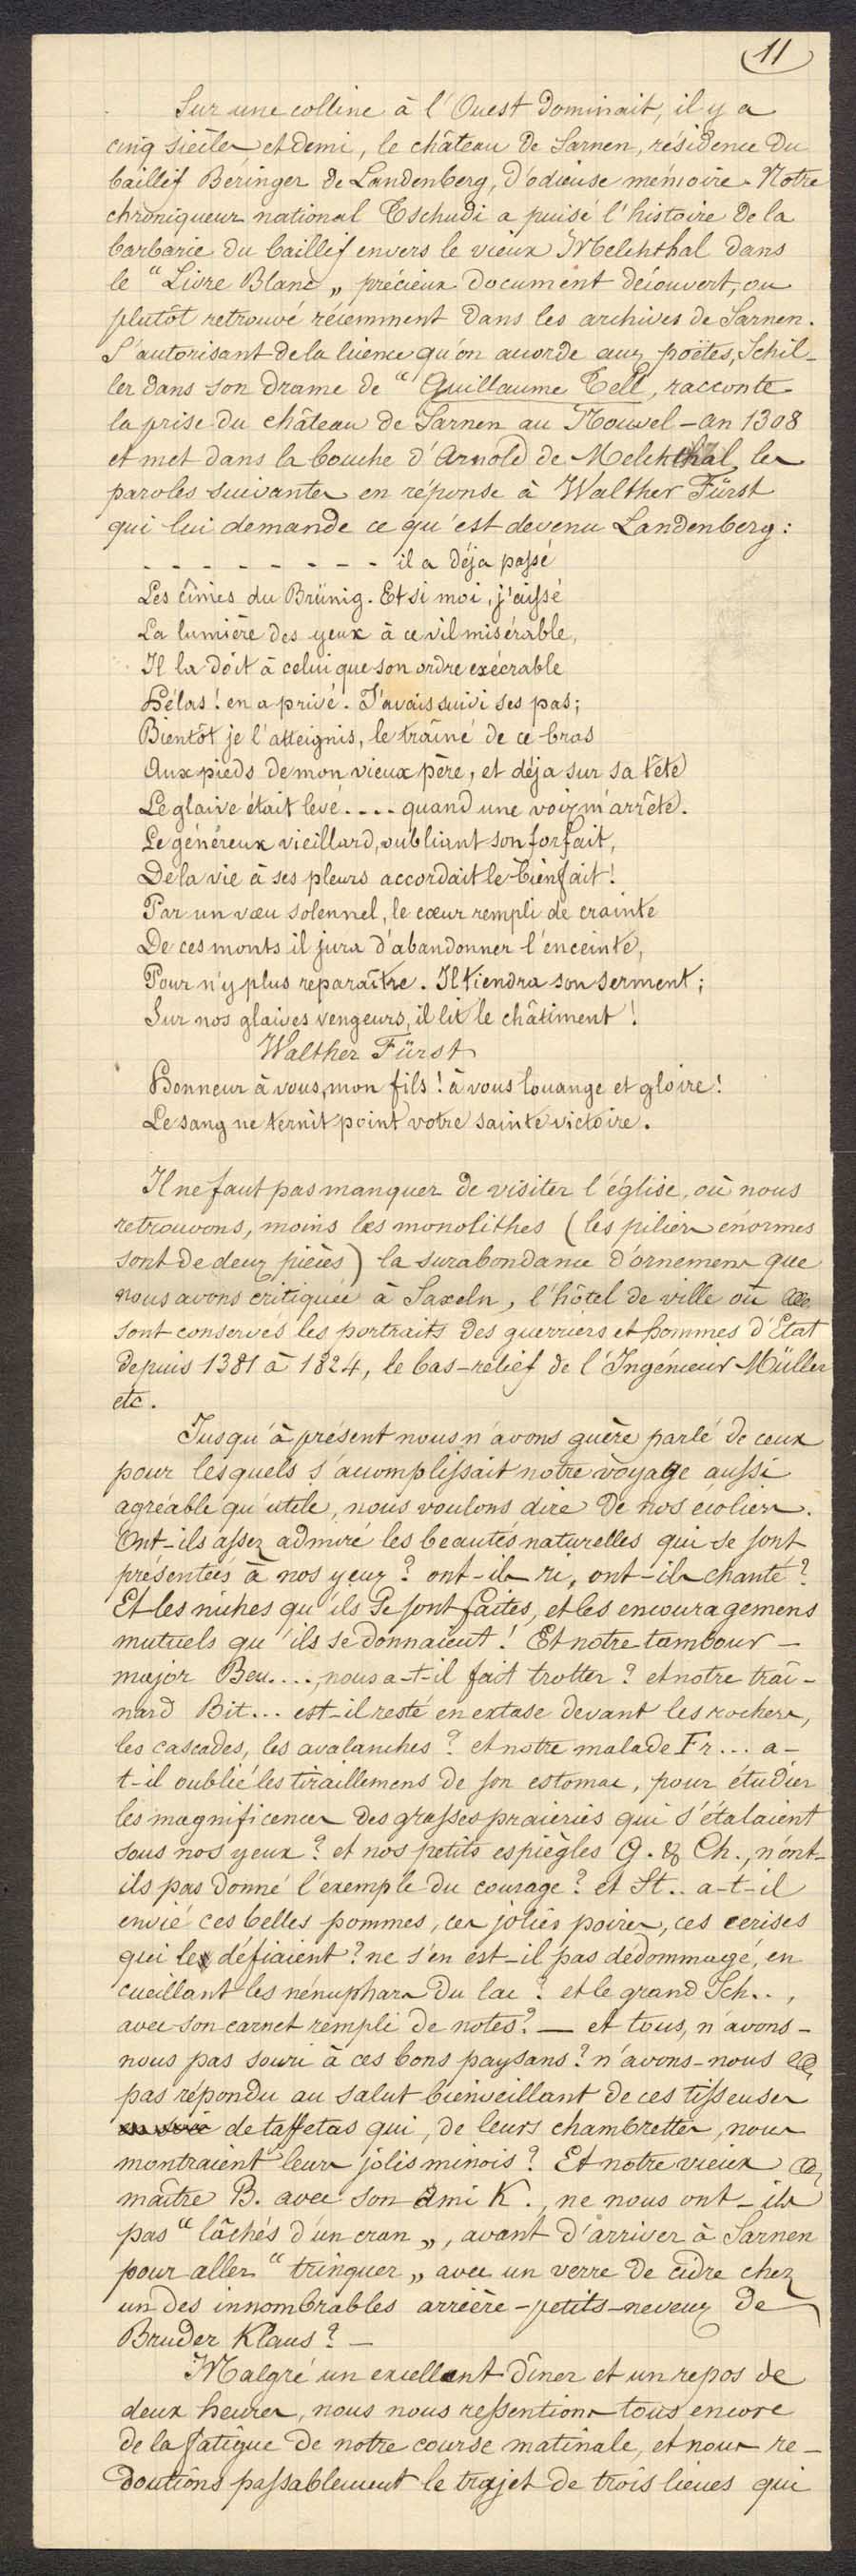 11
Sur une colline à l'Ouest dominait, il y a
cinq siècles et demi, le château de Sarnen, résidence du
baillif Béringer de Landenberg, d'odieuse mémoire. Notre
chroniqueur national Tschudi a puisé l'histoire de la
barbarie du baillif envers le vieux Melchthal dans
le “Livre Blanc„ précieux document découvert, ou
plutôt retrouvé récemment dans les archives de Sarnen.
S'autorisant de la licence qu'on accorde aux poëtes, Schil-
ler dans son drame de “Guillaume Tell, racconte
la prise du château de Sarnen au Nouvel-an 1308
et met dans la bouche d'Arnold de Melchthal les
paroles suivantes en réponse à Walther Fürst
qui lui demande ce qu'est devenu Landenberg:
- - - - - - - - il a déja passé
Les cîmes du Brünig. Et si moi, j'ai laissé
La lumière des yeux à ce vil misérable,
Il la doit à celui que son ordre exécrable
Hélas! en a privé. J'avais suivi ses pas;
Bientôt je l'atteignis, le traîné de ce bras
Aux pieds de mon vieux père, et déja sur sa tête
Le glaive était levé.... quand une voix m'arrête.
Le généreux vieillard, oubliant son forfait,
De la vie à ses pleurs accordait le bienfait!
Par un vœu solennel, le cœur rempli de crainte
De ces monts il jura d'abandonner l'enceinte,
Pour n'y plus reparaître. Il tiendra son serment;
Sur nos glaives vengeurs, il lit le châtiment!
Walther Fürst
Honneur à vous, mon fils! à vous louange et gloire!
Le sang ne ternit point votre sainte victoire.
Il ne faut pas manquer de visiter l'église, où nous
retrouvons, moins les monolithes (les piliers énormes
sont de deux pièces) la surabondance d'ornemens que
nous avons critiquée à Saxeln, l'hôtel de ville où
sont conservés les portraits des guerriers et hommes d'Etat
depuis 1381 à 1824, le bas-relief de l'Ingénieur Müller
etc.
Jusqu'à présent nous n'avons guère parlé de ceux
pour lesquels s'accomplissait notre voyage aussi
agréable qu'utile, nous voulons dire de nos écoliers.
Ont-ils assez admiré les beautés naturelles qui se sont
présentées à nos yeux? ont-ils ri, ont-ils chanté?
Et les niches qu'ils se sont faites, et les encouragemens
mutuels qu'ils se donnaient! Et notre tambour-
major Beu...., nous a-t-il fait trotter? et notre traî-
nard Bit... est-il resté en extase devant les rochers,
les cascades, les avalanches? et notre malade Fr... a-
t-il oublié les tiraillemens de son estomac, pour étudier
les magnificences des grasses praieries qui s'étalaient
sous nos yeux? et nos petits espiègles G. & Ch., n'ont-
ils pas donné l'exemple du courage? et St.. a-t-il
envié ces belles pommes, ces jolies poires, ces cerises
qui le défiaient? ne s'en est-il pas dedommagé, en
cueillant les nénuphars du lac? et le grand Sch..,
avec son carnet rempli de notes? — et tous, n'avons-
nous pas souri à ces bons paysans? n'avons-nous
pas répondu au salut bienveillant de ces tisseuses
de taffetas qui, de leurs chambrettes, nous
montraient leurs jolis minois? Et notre vieux
maître B. avec son ami K., ne nous ont-ils
pas “lâchés d'un cran„, avant d'arriver à Sarnen
pour aller “trinquer„ avec un verre de cidre chez
un des innombrables arrière-petits-neveux de
Bruder Klaus? —
Malgré un excellent dîner et un repos de
deux heures, nous nous ressentions tous encore
de la fatigue de notre course matinale, et nous re-
doutions passablement le trajet de trois lieues qui